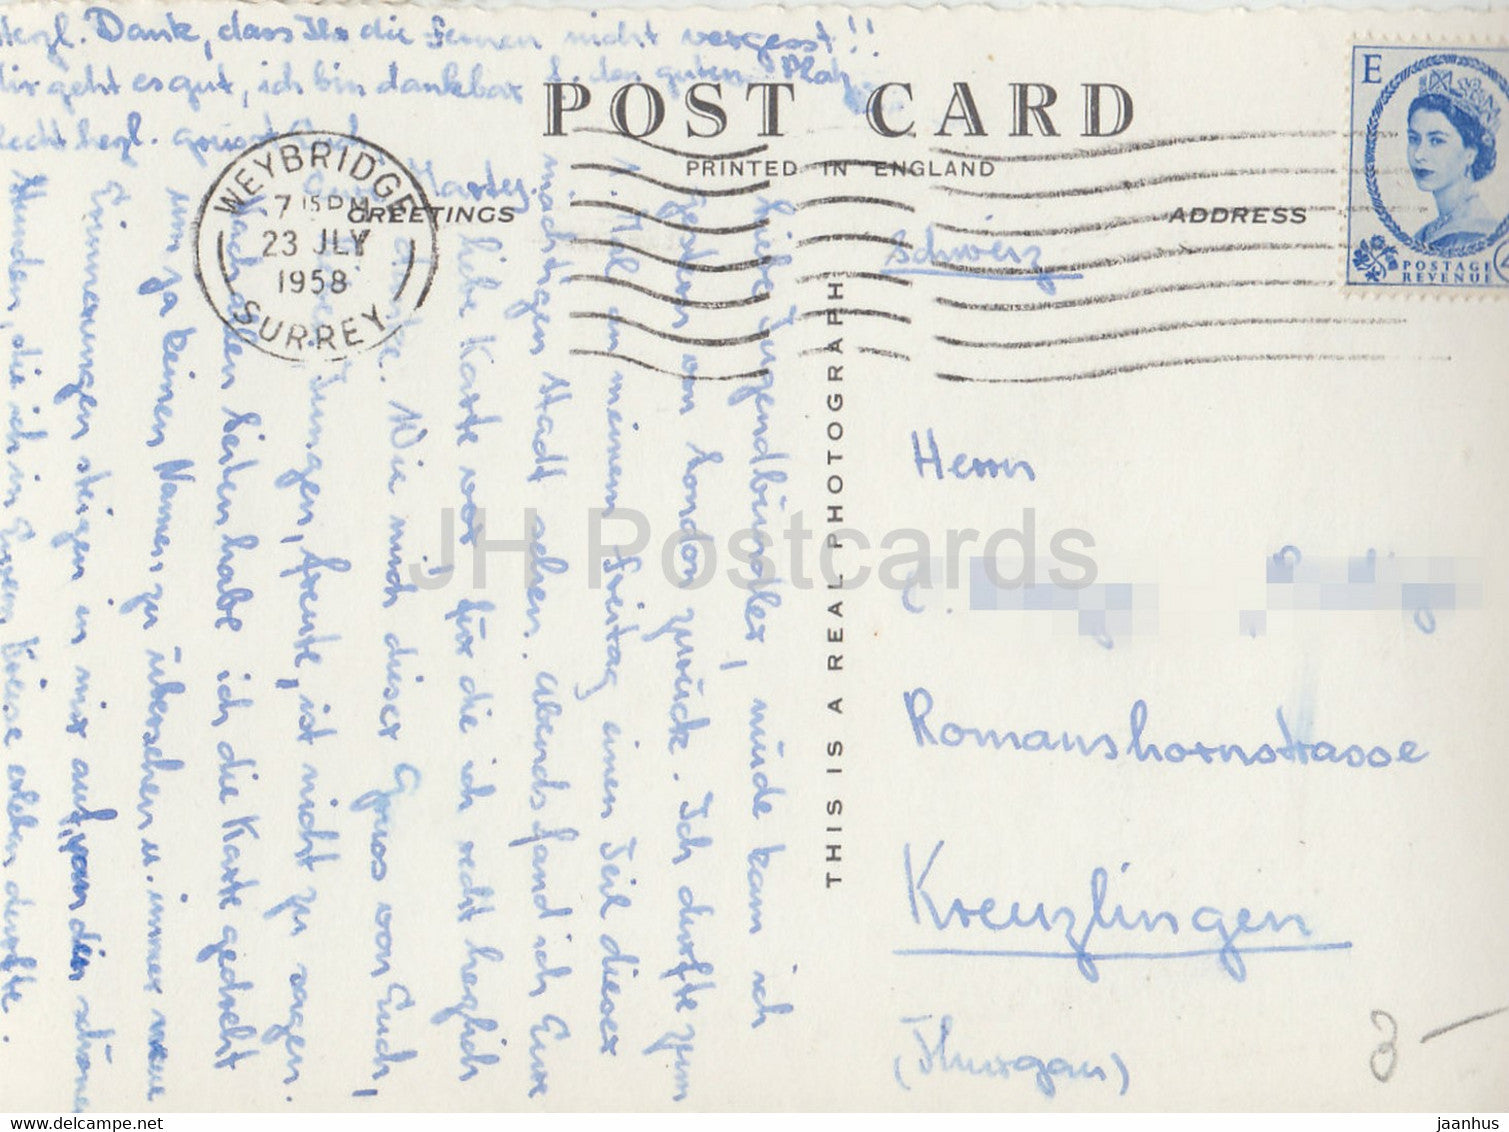 Herzl. Dank, dass Ihr die Fernen nicht vergesst!!
Mir geht es gut, ich bin dankbar f. den guten Platz.
Recht herzl. grüsst Euch
POST CARD
PRINTED IN ENGLAND
GREETINGS
ADDRESS
WEYBRIDGE
7 15 PM
23 JLY
1958
SURREY
E
POSTAGE
REVENUE
4
THIS IS A REAL PHOTOGRAPH
Liebe Jugendbündler, müde kam ich
gestern von London zurück. Ich durfte zum
1. Mal an meinem Freitag einen Teil dieser
mächtigen Stadt sehen. Abends fand ich Eure
liebe Karte vor, für die ich recht herzlich
danke. Wie mich dieser Gruss von Euch,
Jungen, freute, ist nicht zu sagen.
Nach allen Seiten habe ich die Karte gedreht
um ja keinen Namen zu übersehen u. immer neue
Erinnerungen steigen in mir auf, von den schönen
Stunden, die ich in Eurem Kreise erleben durfte.
Schweiz
Herrn
Romanshornstrasse
Kreuzlingen
(Thurgau)
3 -
JH Postcards
www.delcampe.net
jaanhus